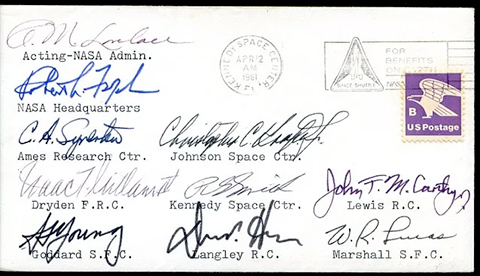 A. M. Lovelace
Acting-NASA Admin.
KENNEDY SPACE CENTER, FL
APR 12
AM
1981
SPACE SHUTTLE
FOR
BENEFITS
ON EARTH
B
US Postage
NASA Headquarters
C. A. Syvertson
Christopher C. Kraft, Jr.
Ames Research Ctr.
Johnson Space Ctr.
Isaac T. Gillam IV
John F. McCarthy Jr
Dryden F.R.C.
Kennedy Space Ctr.
Lewis R.C.
Young
W. R. Lucas
Goddard S.F.C.
Langley R.C.
Marshall S.F.C.